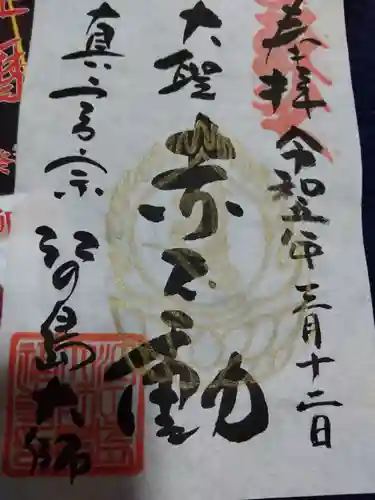 奉拝 令和五年 三月十二日
大聖
赤不動
真言宗
江の島大師